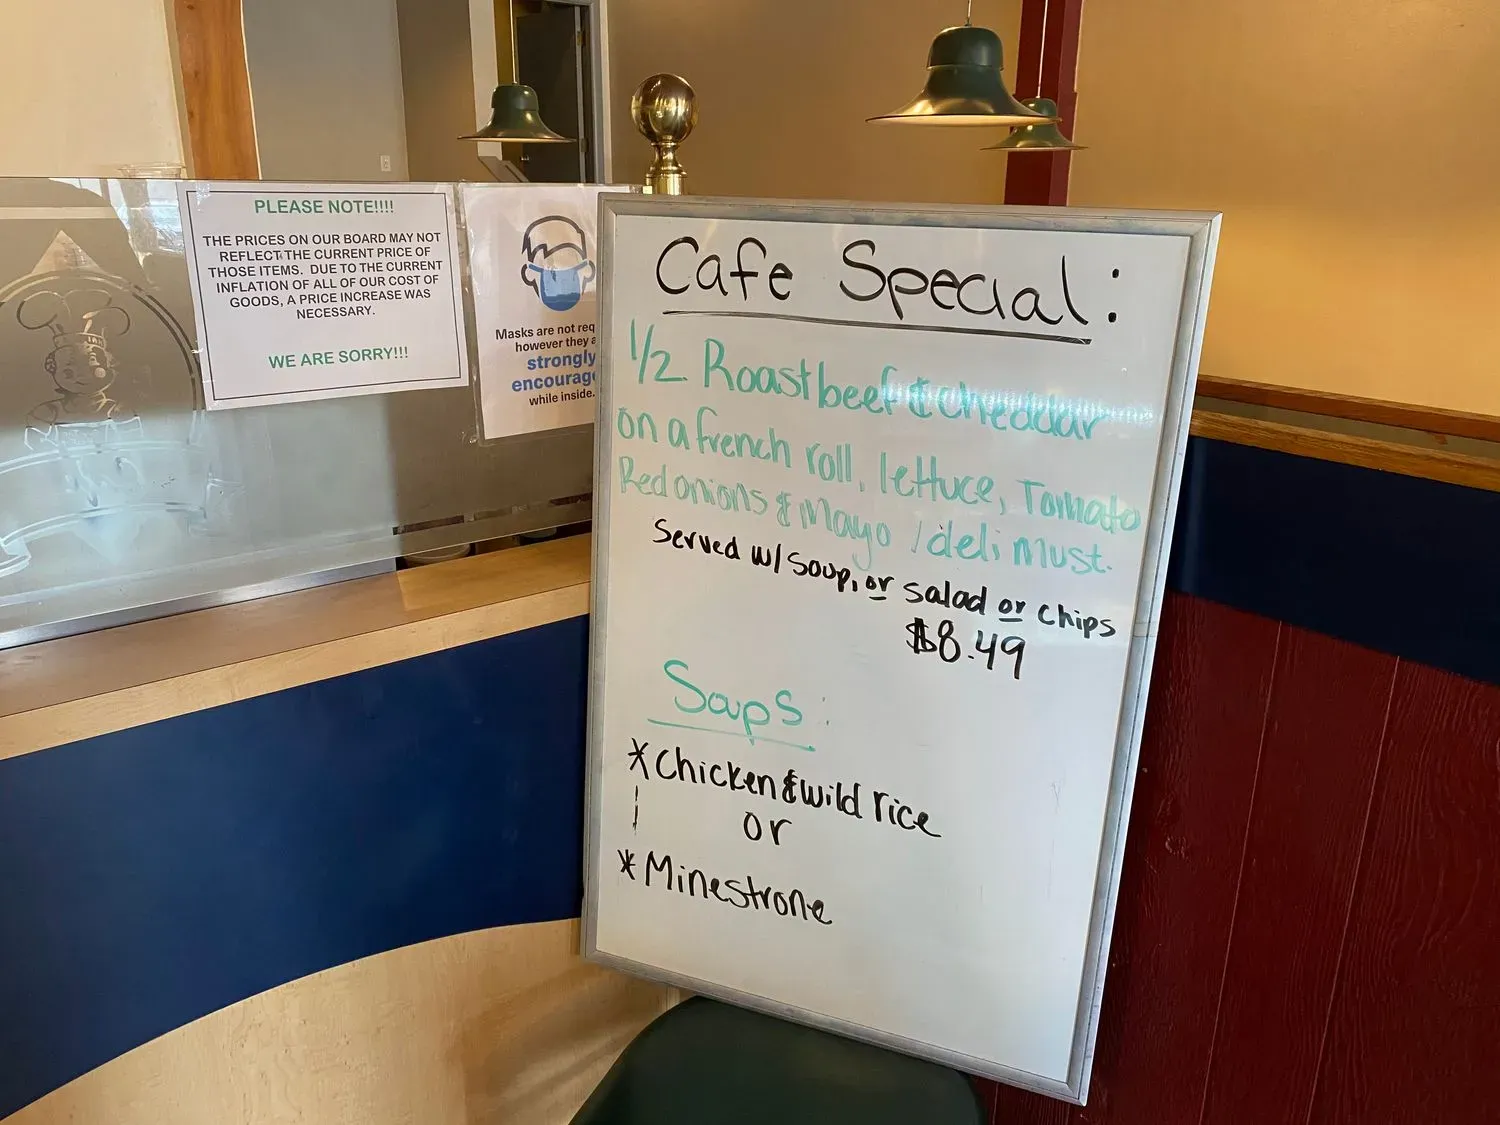 PLEASE NOTE!!!!
THE PRICES ON OUR BOARD MAY NOT
REFLECT THE CURRENT PRICE OF
THOSE ITEMS. DUE TO THE CURRENT
INFLATION OF ALL OF OUR COST OF
GOODS, A PRICE INCREASE WAS
NECESSARY.
WE ARE SORRY!!!
Masks are not req
however they a
strongly
encourag
while inside.
Cafe Special:
1/2 Roastbeef & cheddar
on a french roll, lettuce, Tomato
Red onions & Mayo / deli Must.
Served w/ Soup, or salad or chips
$8.49
Soups:
*Chicken & wild rice
or
*Minestrone